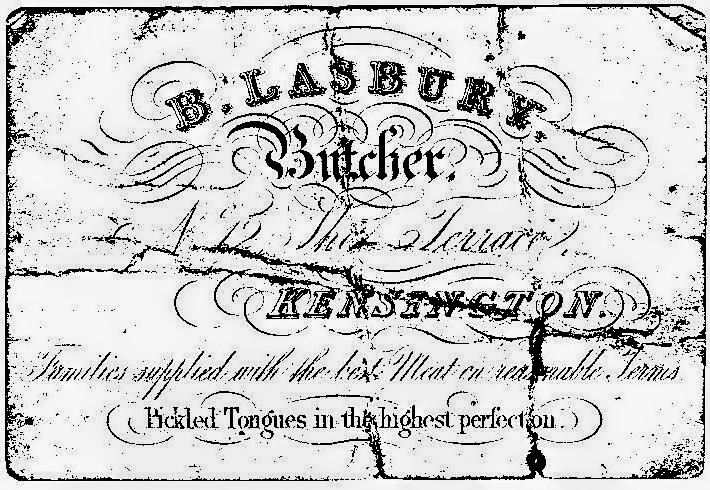 B. LASBURY.
Butcher.
12, The Terrace,
KENSINGTON.
Families supplied with the best Meat on reasonable Terms
Pickled Tongues in the highest perfection.